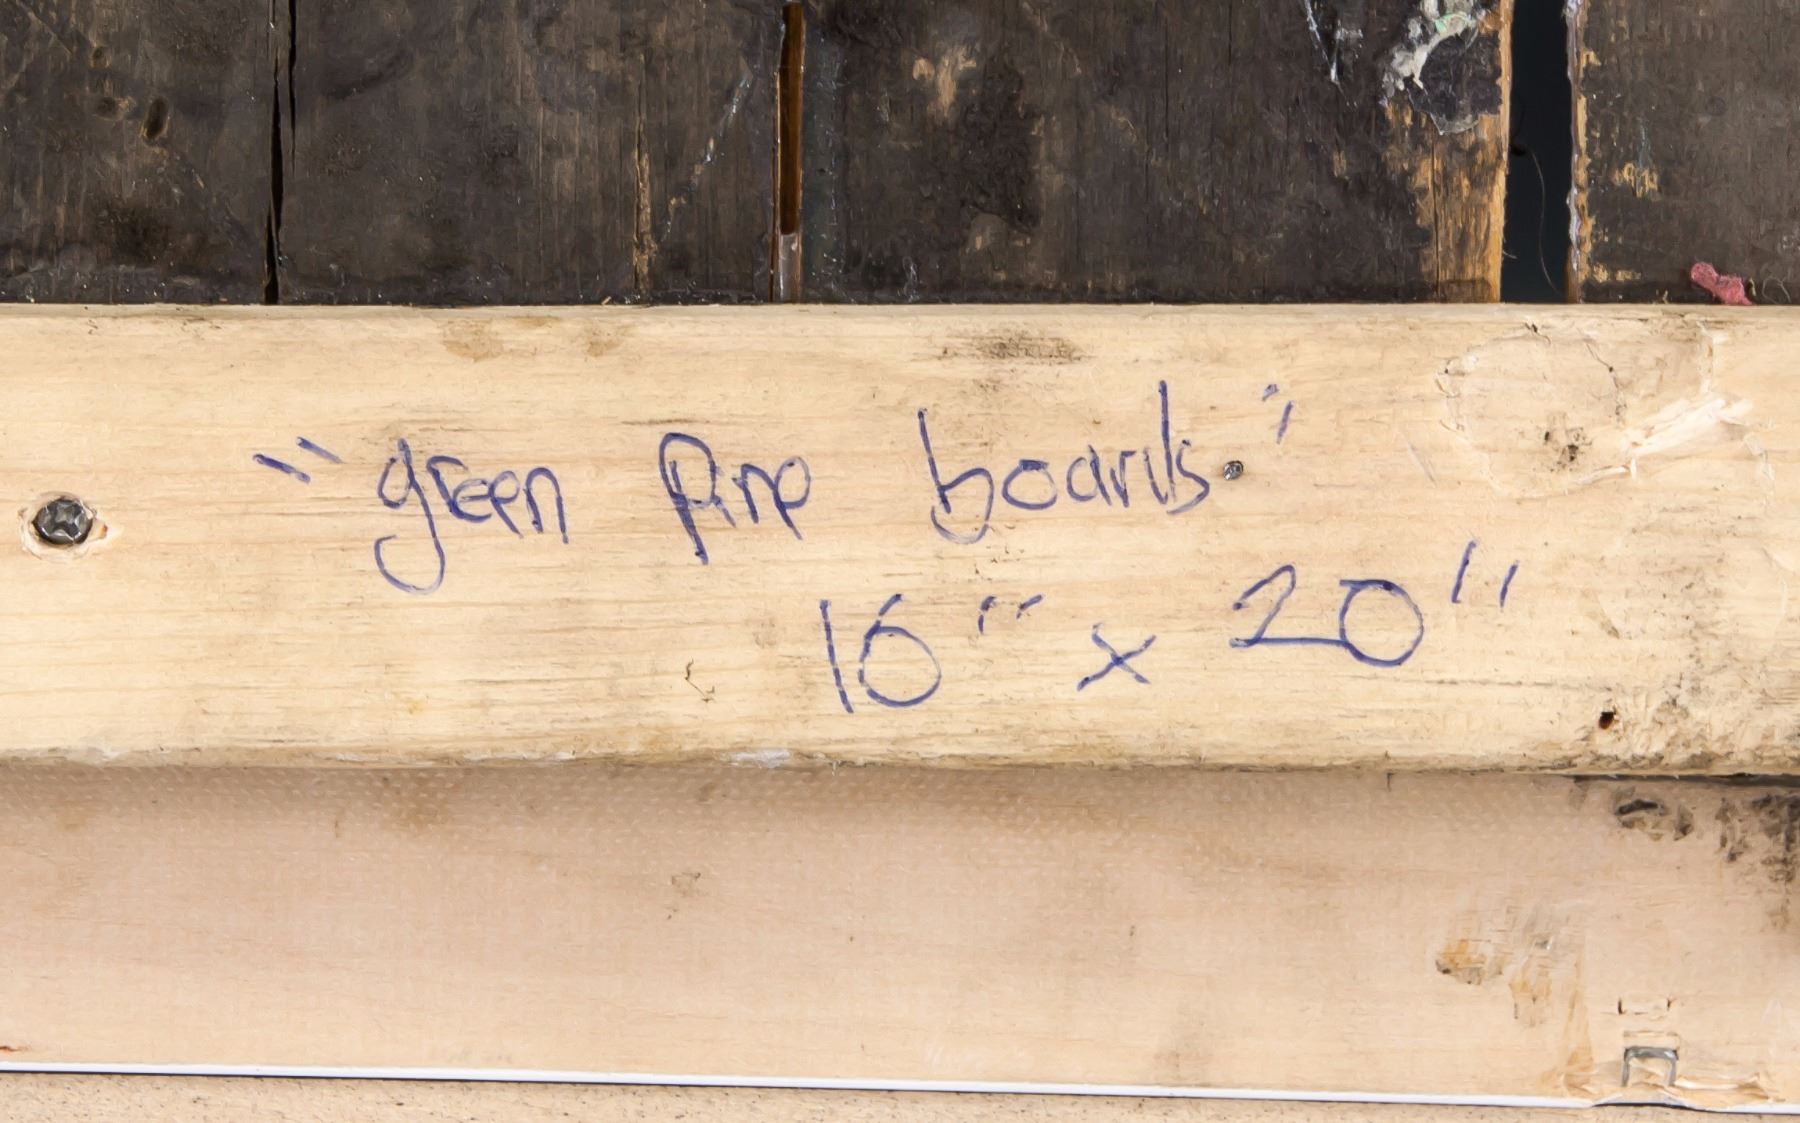 "green pine boards"
16" x 20"